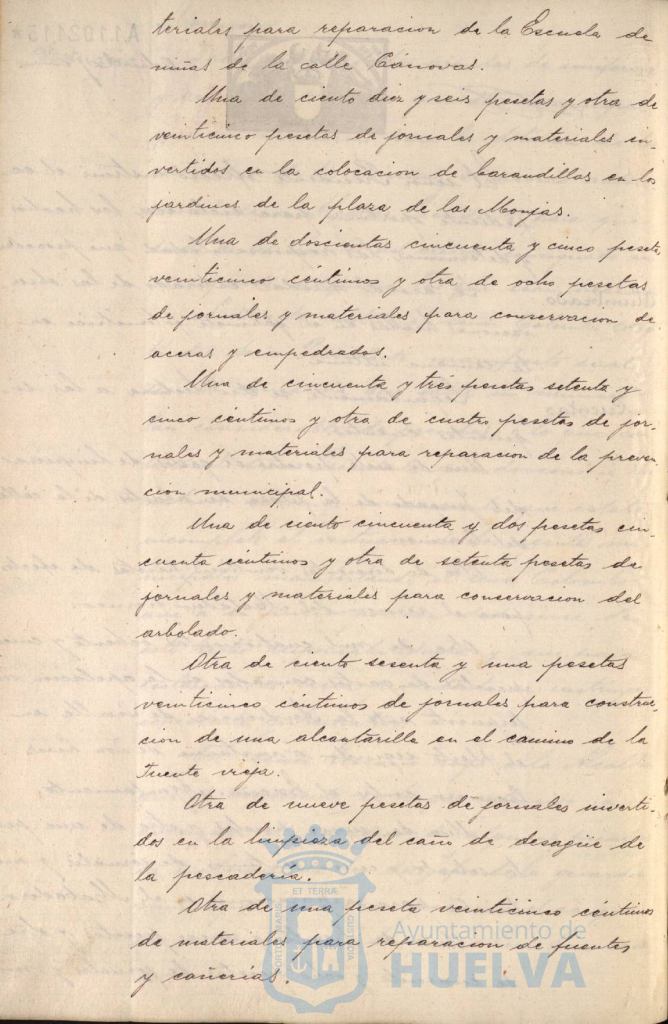 teriales para reparacion de la Escuela de
niñas de la calle Cánovas.
Una de ciento diez y seis pesetas y otra de
veinticinco pesetas de jornales y materiales in-
vertidos en la colocacion de barandillas en los
jardines de la plaza de las Monjas.
Una de doscientas cincuenta y cinco pesetas
veinticinco céntimos y otra de ocho pesetas
de jornales y materiales para conservacion de
aceras y empedrados.
Una de cincuenta y tres pesetas setenta y
cinco céntimos y otra de cuatro pesetas de jor-
nales y materiales para reparacion de la preven-
cion municipal.
Una de ciento cincuenta y dos pesetas cin-
cuenta céntimos y otra de setenta pesetas de
jornales y materiales para conservacion del
arbolado.
Otra de ciento sesenta y una pesetas
veinticinco céntimos de jornales para construc-
cion de una alcantarilla en el camino de la
Fuente vieja.
Otra de nueve pesetas de jornales inverti-
dos en la limpieza del caño de desagüe de
la pescadería.
Otra de una peseta veinticinco céntimos
de materiales para reparacion de fuentes
y cañerias.
Ayuntamiento de
HUELVA